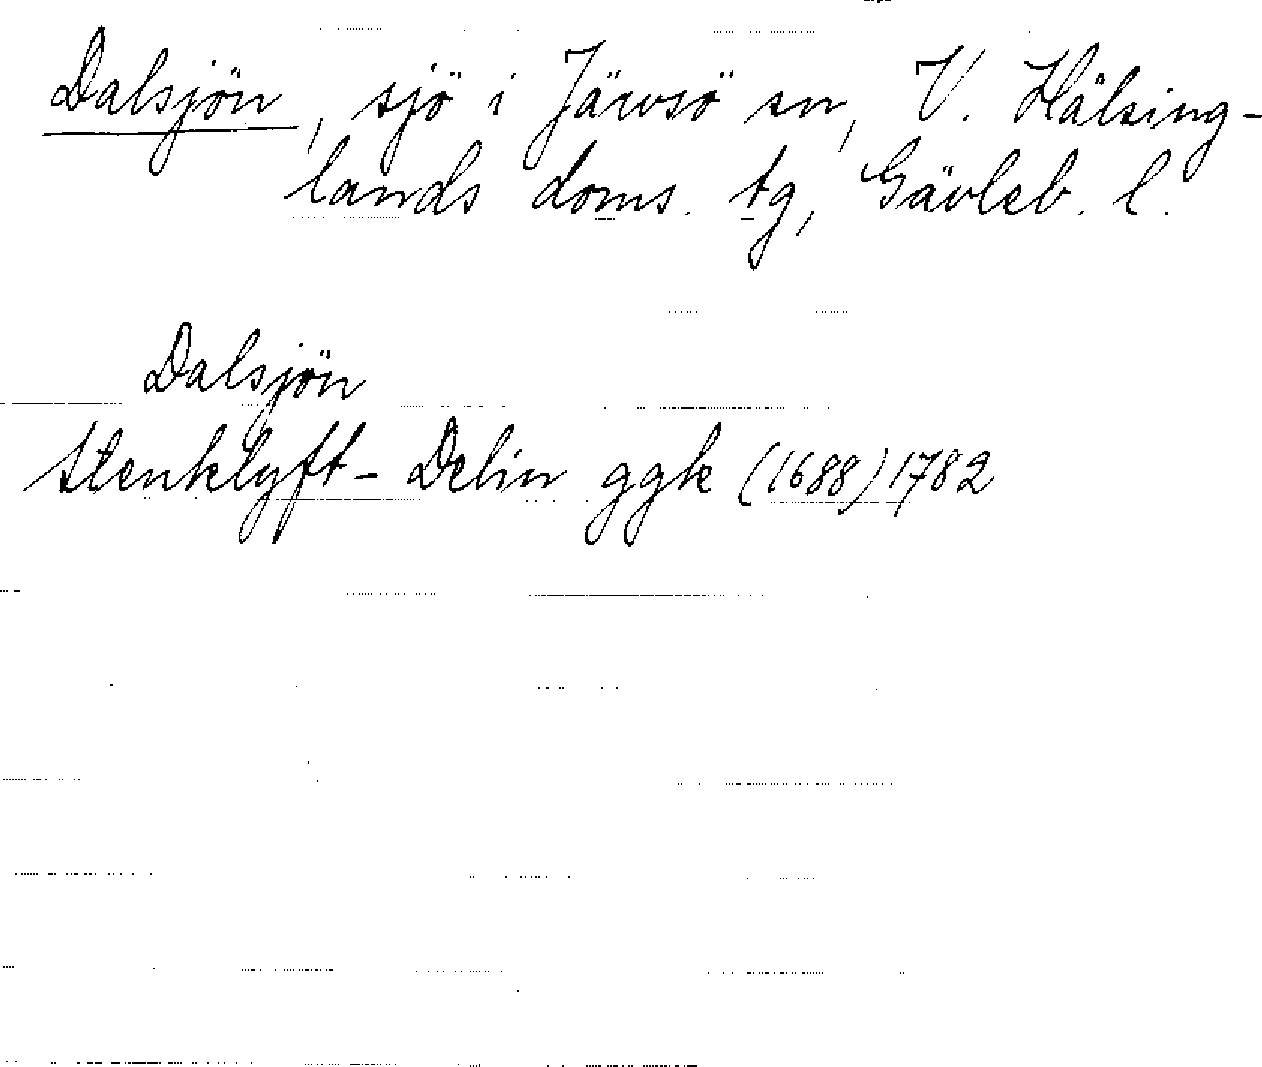 Dalsjön, sjö i Järvsö sn, V. Hälsing-
lands doms. tg, Gävleb. l.
Dalsjön
Stenklyft- Delin ggk (1688) 1782